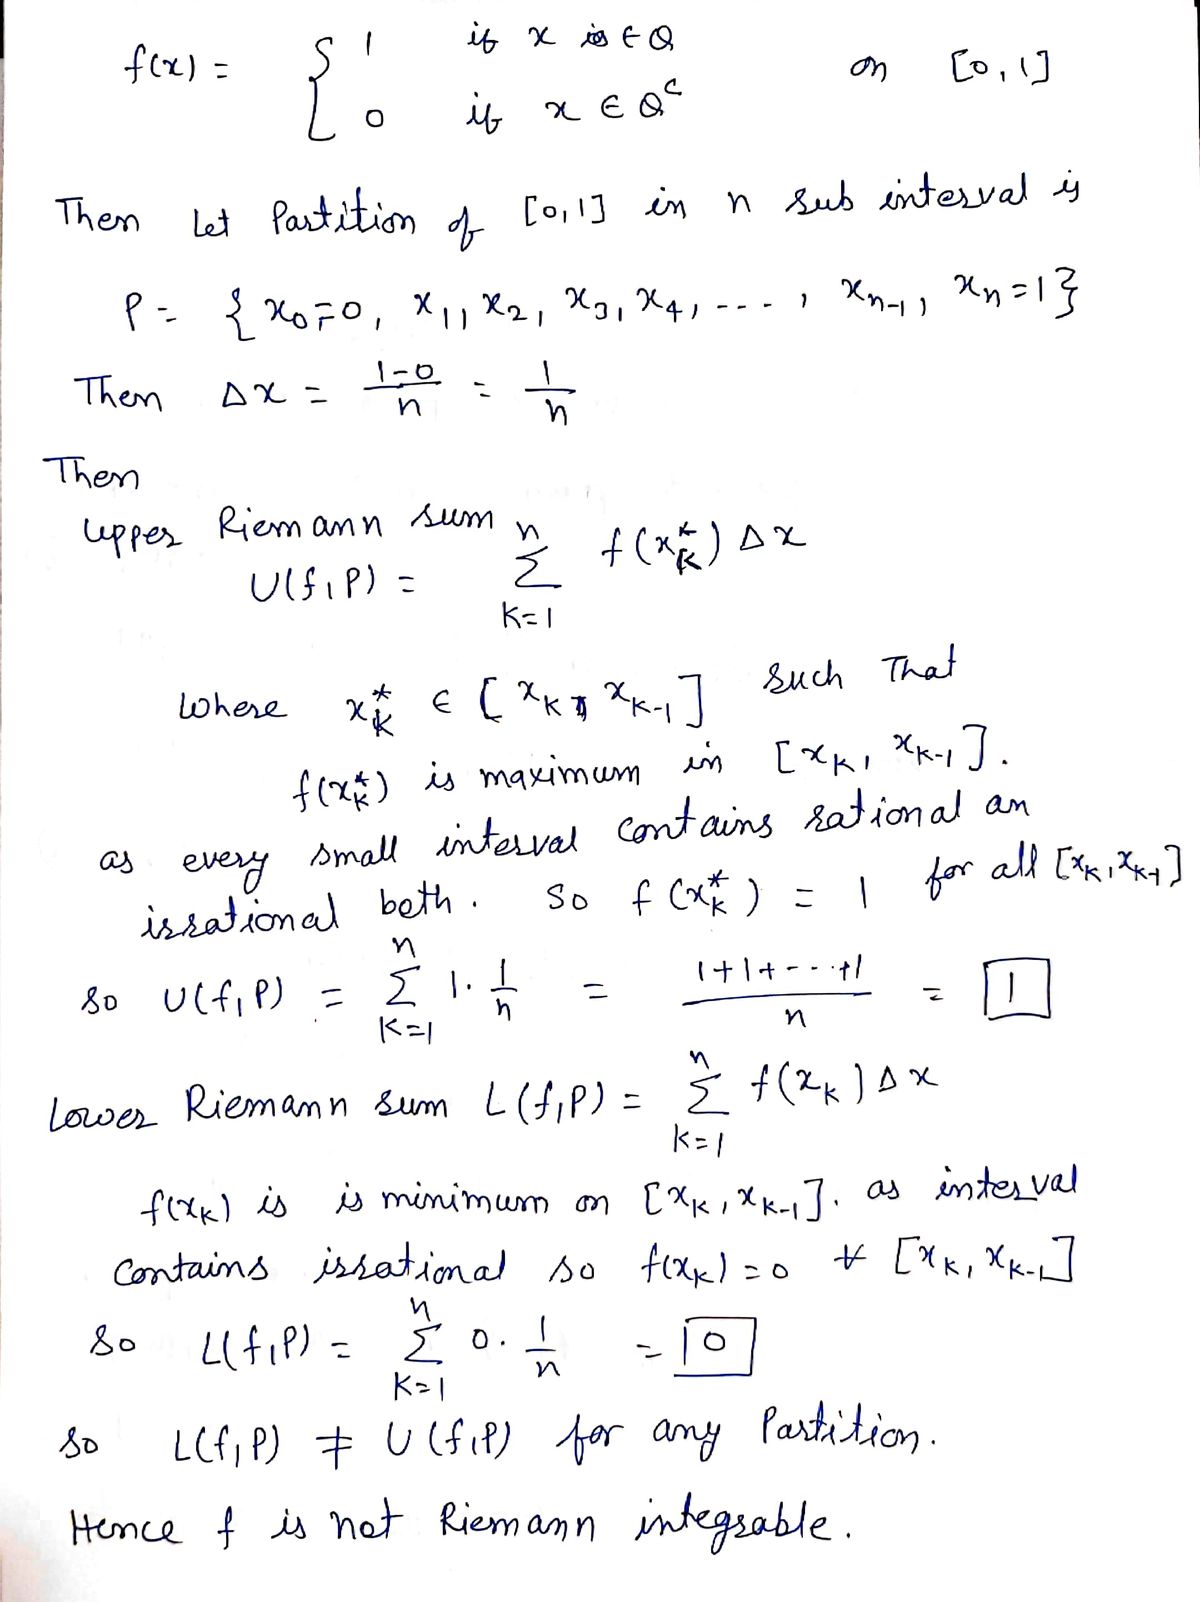 f(x) = { 1 if x is ∈ Q on [0, 1]
0 if x ∈ Q^c
Then Let Partition of [0,1] in n sub interval is
P = { x₀=0, x₁, x₂, x₃, x₄, ---, xₙ₋₁, xₙ=1}
Then Δx = (1-0)/n = 1/n
Then
Upper Riemann sum
U(f,P) = Σ_{k=1}^{n} f(x_k^*) Δx
Where x_k^* ∈ [x_k, x_{k-1}] such That
f(x_k^*) is maximum in [x_k, x_{k-1}].
as every small interval contains rational an
irrational both. So f(x_k^*) = 1 for all [x_k, x_{k-1}]
So U(f,P) = Σ_{k=1}^{n} 1·1/n = (1+1+---+1)/n = 1
Lower Riemann sum L(f,P) = Σ_{k=1}^{n} f(x_k) Δx
f(x_k) is is minimum on [x_k, x_{k-1}]. as interval
Contains irrational so f(x_k) = 0 ∀ [x_k, x_{k-1}]
So L(f,P) = Σ_{k=1}^{n} 0·1/n = 0
So L(f,P) ≠ U(f,P) for any Partition.
Hence f is not Riemann integrable.